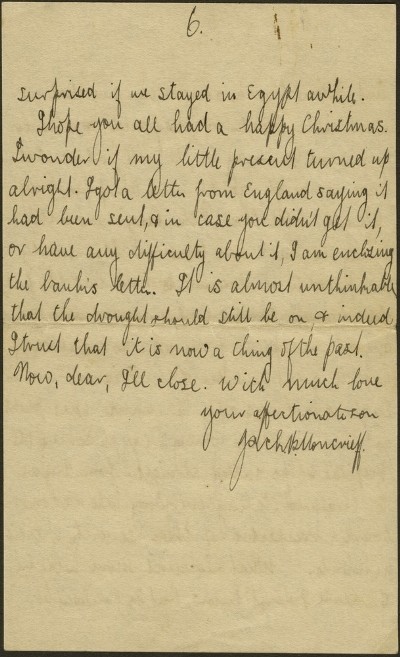 6.
surprised if we stayed in Egypt awhile.
I hope you all had a happy Christmas.
I wonder if my little present turned up
alright. I got a letter from England saying it
had been sent, & in case you didn't get it,
or have any difficulty about it, I am enclosing
the bank's letter. It is almost unthinkable
that the drought should still be on, & indeed
I trust that it is now a thing of the past.
Now, dear, I'll close. With much love
your affectionate son
Jack B. Moncrieff.